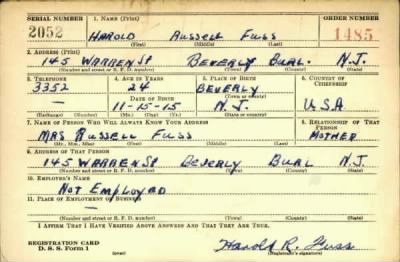 SERIAL NUMBER 1. NAME (Print) ORDER NUMBER
2052 HAROLD RUSSELL FUSS 1485
(First) (Middle) (Last)
2. ADDRESS (Print)
145 WARREN St BEVERLY BURL. N.J.
(Number and street or R. F. D. number) (Town) (County) (State)
3. TELEPHONE 4. AGE IN YEARS 5. PLACE OF BIRTH 6. COUNTRY OF CITIZENSHIP
3352 24 BEVERLY
DATE OF BIRTH (Town or county)
— 11-15-15 N.J. USA
(Exchange) (Number) (Mo.) (Day) (Yr.) (State or country)
7. NAME OF PERSON WHO WILL ALWAYS KNOW YOUR ADDRESS 8. RELATIONSHIP OF THAT PERSON
MRS RUSSELL FUSS MOTHER
(Mr., Mrs., Miss) (First) (Middle) (Last)
9. ADDRESS OF THAT PERSON
145 WARREN St BEVERLY BURL N.J.
(Number and street or R. F. D. number) (Town) (County) (State)
10. EMPLOYER'S NAME
NOT EMPLOYED
11. PLACE OF EMPLOYMENT OR BUSINESS
—
(Number and street or R. F. D. number) (Town) (County) (State)
I AFFIRM THAT I HAVE VERIFIED ABOVE ANSWERS AND THAT THEY ARE TRUE.
REGISTRATION CARD
D. S. S. Form 1 Harold R. Fuss
(over) (Registrant's signature)